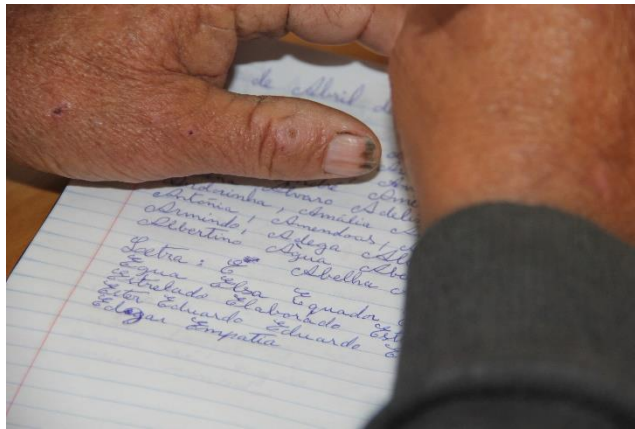 de Abril de
Alvaro Adeli
Andorinha, Amália
Antónia, Amendoas,
Armindo, Adega Al
Albertino Agua Abe
Letra: E Abelha
Egua Elsa Equador
Estrelado Elaborado Est
Eiter Eduardo Eduardo E
Edgar Empatia